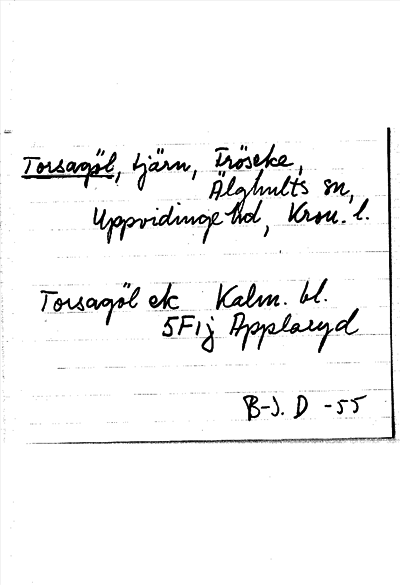 Torsagöl, tjärn, Fröseke,
Älghults sn,
Uppvidinge hd, Kron. l.
Torsagöl ek Kalm. bl.
5F1j Applaryd
B-J. D -55